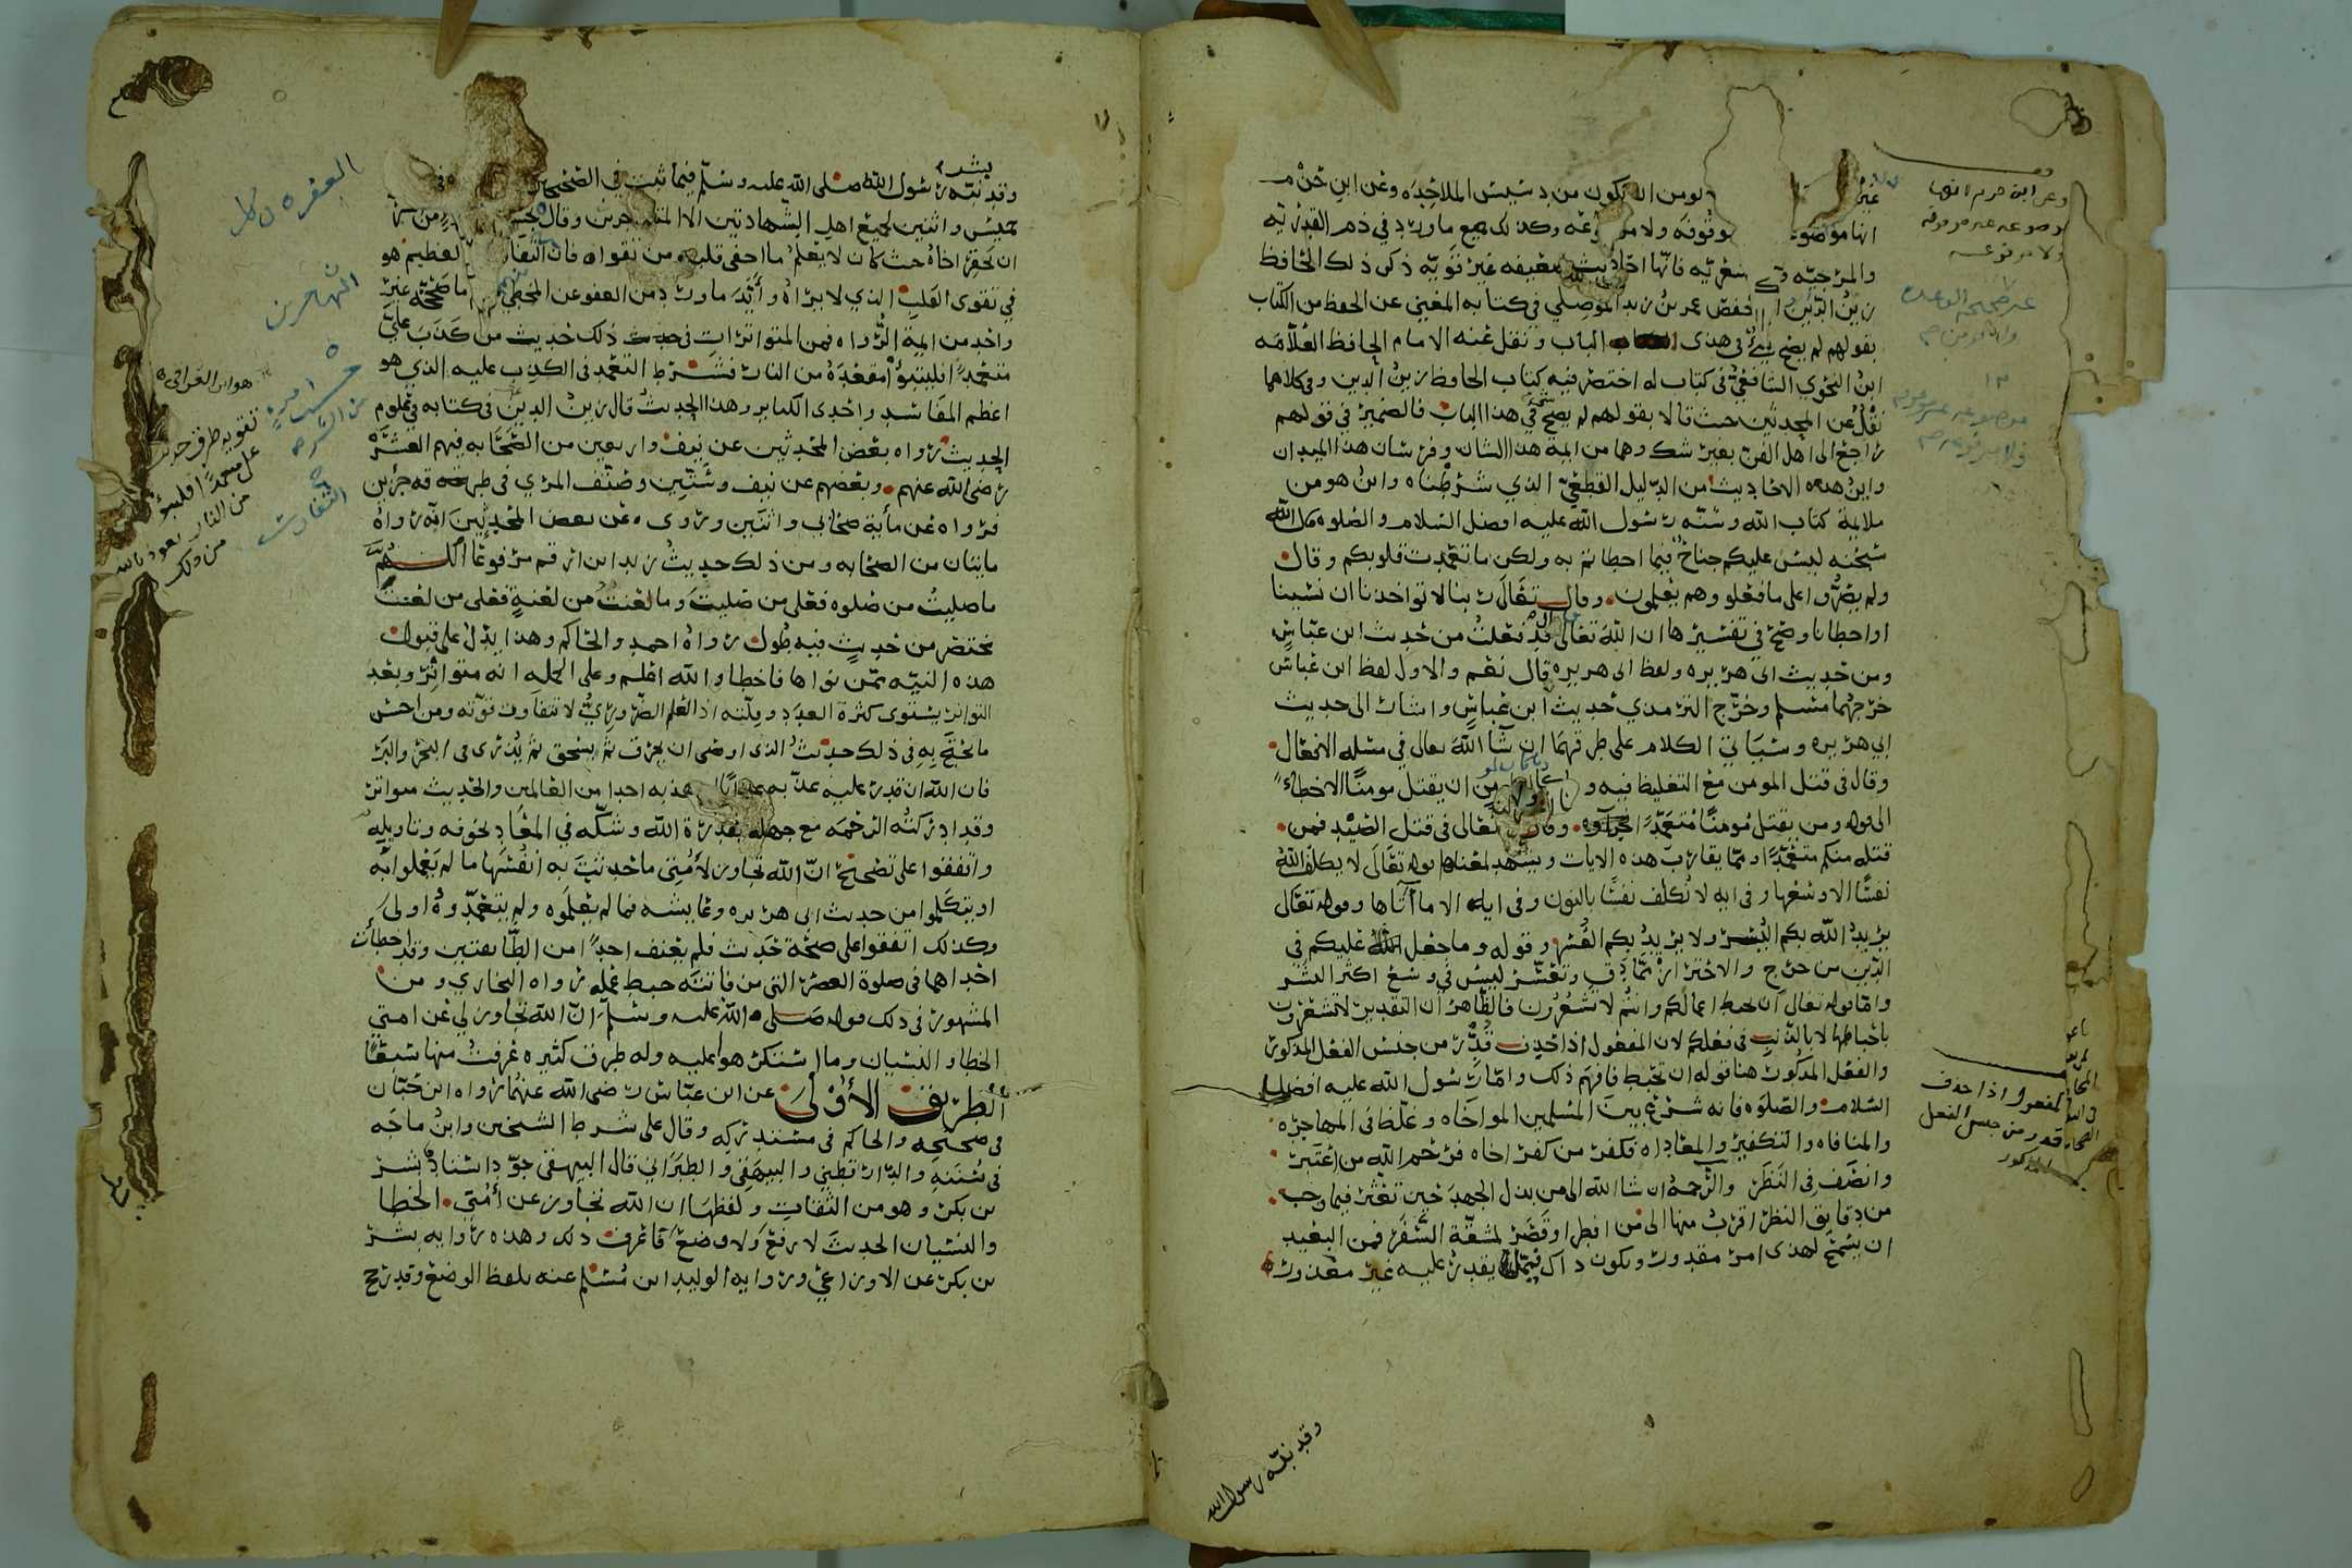 لومن ان يكون من دسيس الملاحده وعن ابن حزم
انها موضوعة موقوفه ولا مرفوعه وكذلك جميع ما ورد في ذم القدريه
والمرجيه والاشعريه فانها احاديث ضعيفه غير قويه ذكر ذلك الحافظ
زين الدين ابو حفص عمر بن بدر الموصلي في كتابه المغني عن الحفظ من الكتاب
بقولهم لم يصح شي في هذا الباب ونقل عنه الامام الحافظ العلامه
ابن النحوي الشافعي في كتاب له اختصر فيه كتاب الحافظ زين الدين وفي كلاهما
نقل عن المحدثين حيث قالا بقولهم لم يصح شي في هذا الباب فالضمير في قولهم
راجع الى اهل الفن بغير شك وهما من ايمة هذا الشان وفرسان هذا الميدان
واين هذه الاحاديث من الدليل القطعي الذي شرطناه واين هو من
ملايمة كتاب الله وسنه رسول الله عليه افضل السلام والصلوه قال الله
سبحنه ليس عليكم جناح فيما اخطاتم به ولكن ما تعمدت قلوبكم وقال
ولم يصروا على ما فعلوا وهم يعلمون وقال تعالى ربنا لا تواخذنا ان نسينا
او اخطانا وصح في تفسيرها ان الله تعالى قال قد فعلت من حديث ابن عباس
ومن حديث ابي هريره ولفظ ابي هريره قال نعم والاول لفظ ابن عباس
خرجهما مسلم وخرج الترمدي حديث ابن عباس واشار الى حديث
ابي هريره وسياتي الكلام على طرقهما ان شآ الله تعالى في مسئله الافعال
وقال في قتل المومن مع التغليظ فيه وما كان لمومن ان يقتل مومنًا الا خطاءً
الى قوله ومن يقتل مومنا متعمدا فجزاوه وقال تعالى في قتل الصيد فمن
قتله منكم متعمدا ومما يقارب هذه الايات ويشهد لمعناها قوله تعالى لا يكلف الله
نفسًا الا وسعها وفي ايه لا نكلف نفسًا بالنون وفي ايه الا ما آتاها وقوله تعالى
يريد الله بكم اليسر ولا يريد بكم العسر وقوله وما جعل عليكم في
الدين من حرج والاحتراز مما دق وتعسر ليس في وسع اكثر البشر
واما قوله تعالى ان تحبط اعمالكم وانتم لا تشعرون فالظاهر ان التقدير لا تشعرون
باحباطها لا بالذنب في فعلكم لان المفعول اذا حذف قدر من جنس الفعل المذكور
والفعل المذكور هنا قوله ان تحبط فافهم ذلك واما رسول الله عليه افضل
السلام والصلوه فانه شرع بين المسلمين المواخاه وغلظ في المهاجره
والمنافاه والتكفير والمعاداه فكفر من كفر اخاه فرحم الله من اعتبر
وانصف في النظر والرحمه ان شا الله الى من بذل الجهد حين تعثر فيما وجب
من دقايق النظر اقرب منها الى من افطر او قصر لمشقة السفر فمن البعيد
ان يسمح لهذا امر مقدور ويكون ذاك فيما لا يقدر عليه غير معذور
وقد نبه رسول الله
وعن ابن حزم انها
موضوعه غير موقوفه
ولا مرفوعه
المفعول اذا حذف
قدر من جنس الفعل
المذكور
وقد نبه رسول الله صلى الله عليه وسلم فيما ثبت في الصحيحين
خميس واثنين لجميع اهل الشهادتين الا المتهاجرين وقال بحسب امرءٍ من الشر
ان يحقر اخاه حيث كان لا يعلم ما اخفى قلبه من تقواه فان التفاوت العظيم هو
في تقوى القلب الذي لا يراه وأيد ما ورد من العفو عن المخطي ما صححه غير
واحد من ايمة الرواه فمن المتواترات في ذلك حديث من كذب علي
متعمدا فليتبوا مقعده من النار فشرط التعمد في الكذب عليه الذي هو
اعظم المفاسد واحدى الكباير وهذا الحديث قال زين الدين في كتابه في علوم
الحديث رواه بعض المحدثين عن نيف واربعين من الصحابه فيهم العشرة
رضي الله عنهم وبعضهم عن نيف وستين وصنف المزي في طرقه جزين
فرواه عن مأية صحابي واثنين وروى عن بعض المحدثين انه رواه
مايتان من الصحابه ومن ذلك حديث زيد ابن ارقم مرفوعا اللهم
ما صليت من صلوه فعلى من صليت وما لعنت من لعنةٍ فعلى من لعنت
مختصر من حديثٍ فيه طول رواه احمد والحاكم وهذا يدل على قبول
هذه النيه ممن نواها فاخطا والله اعلم وعلى الجمله انه متواتر وبعد
التواتر يستوى كثرة العدد وقلته اذ العلم الضروري لا تتفاوت قوته ومن احسن
ما يحتج به في ذلك حديث الذي اوصى ان يحرق ثم يسحق ثم يذرى في البحر والبر
فان الله ان قدر عليه عذبه عذابًا لا يعذبه احدا من العالمين والحديث متواتر
وقد ادركته الرحمه مع جهله بقدرة الله وشكه في المعاد لخوفه وتاويله
واتفقوا على تصحيح ان الله تجاوز لأمتي ما حدثت به انفسها ما لم يعملوا به
او يتكلموا من حديث ابي هريره وعايشه فما لم يعلموه ولم يتعمدوه اولى
وكذلك اتفقوا على صحة حديث فلم يعنف احدًا من الطايفتين وقد اخطأت
احداهما في صلوة العصر التي من فاتته حبط عمله رواه البخاري ومن
المشهور في ذلك قوله صلى الله عليه وسلم ان الله تجاوز لي عن امتي
الخطا والنسيان وما استكرهوا عليه وله طرق كثيره عرفت منها سبعًا
الطريق الأولى عن ابن عباس رضي الله عنهما رواه ابن حبان
في صحيحه والحاكم في مستدركه وقال على شرط الشيخين وابن ماجه
في سننه والدارقطني والبيهقي والطبراني قال البيهقي جود اسناده بشر
بن بكر وهو من الثقات ولفظها ان الله تجاوز عن أمتي الخطا
والنسيان الحديث لا رفع ولا وضع فاعرف ذلك وهذه روايه بشر
بن بكر عن الاوزاعي وروايه الوليد ابن مسلم عنه بلفظ الوضع وقد رجح
هو ابن العراقي
تقويه طرق حديث
علي متعمداً فليتبوء
من النار نعوذ بالله
من ذلك
المتهاجرين
من الشر
التفاوت